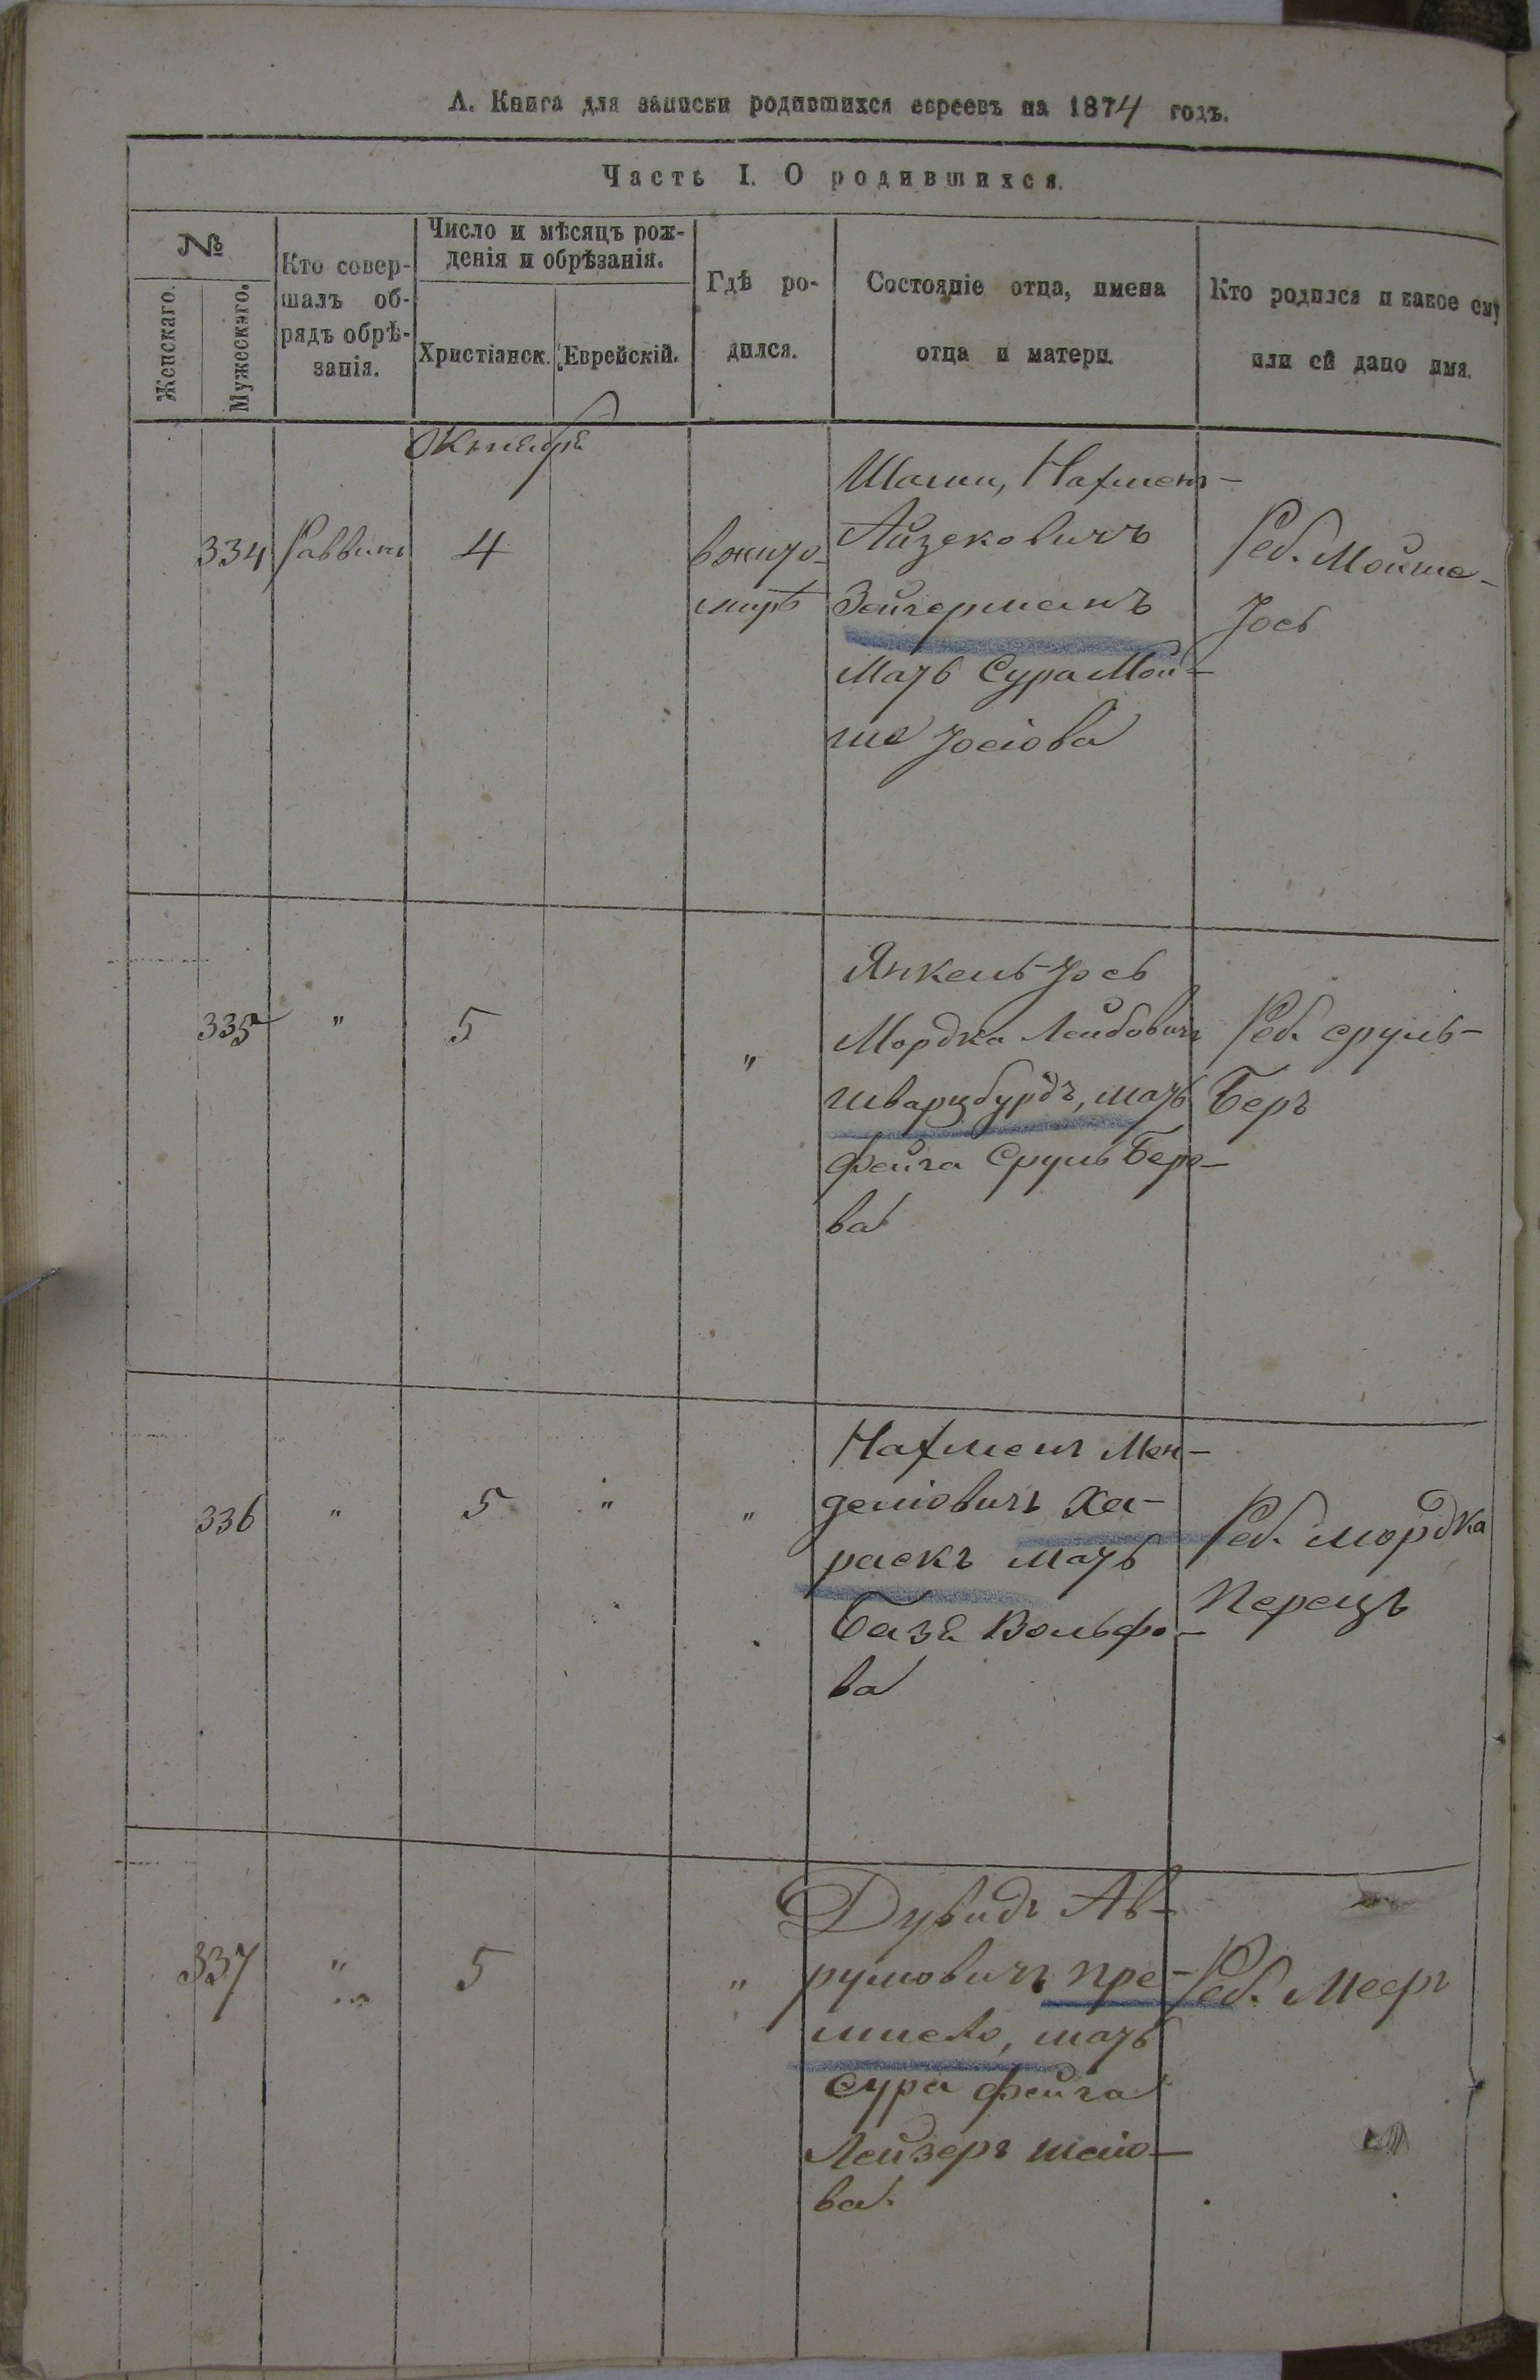 А. Книга для записки родившихся евреевъ на 1874 годъ.
Часть I. О родившихся.
№
Женскаго.
Мужескаго.
Кто совер-
шалъ об-
рядъ обрѣ-
занія.
Число и мѣсяцъ рож-
денія и обрѣзанія.
Христіанск.
Еврейскій.
Гдѣ ро-
дился.
Состояніе отца, имена
отца и матери.
Кто родился и какое ему
или ей дано имя.
Октября
334
Раввинъ
4
в жито-
мирѣ
Нахменъ-
Айзековичъ
Зейгерманъ
мать Сура Мой-
ше Іосіова
Реб. Мойше-
Іось
335
"
5
"
Янкель-Іось
Мордка Лейбовичъ
Шварцбурдъ, мать
Фейга Сруль Беро-
ва
Реб. Сруль-
Беръ
336
"
5
"
"
Нахменъ Мен-
деліовичъ Ха-
раскъ мать
База Вольфо-
ва
Реб. Мордка
Перецъ
337
"
5
"
Дувидъ Ав-
румовичъ Пре-
мисло, мать
Сура Фейга
Лейзеръ
ва.
Реб. Мееръ